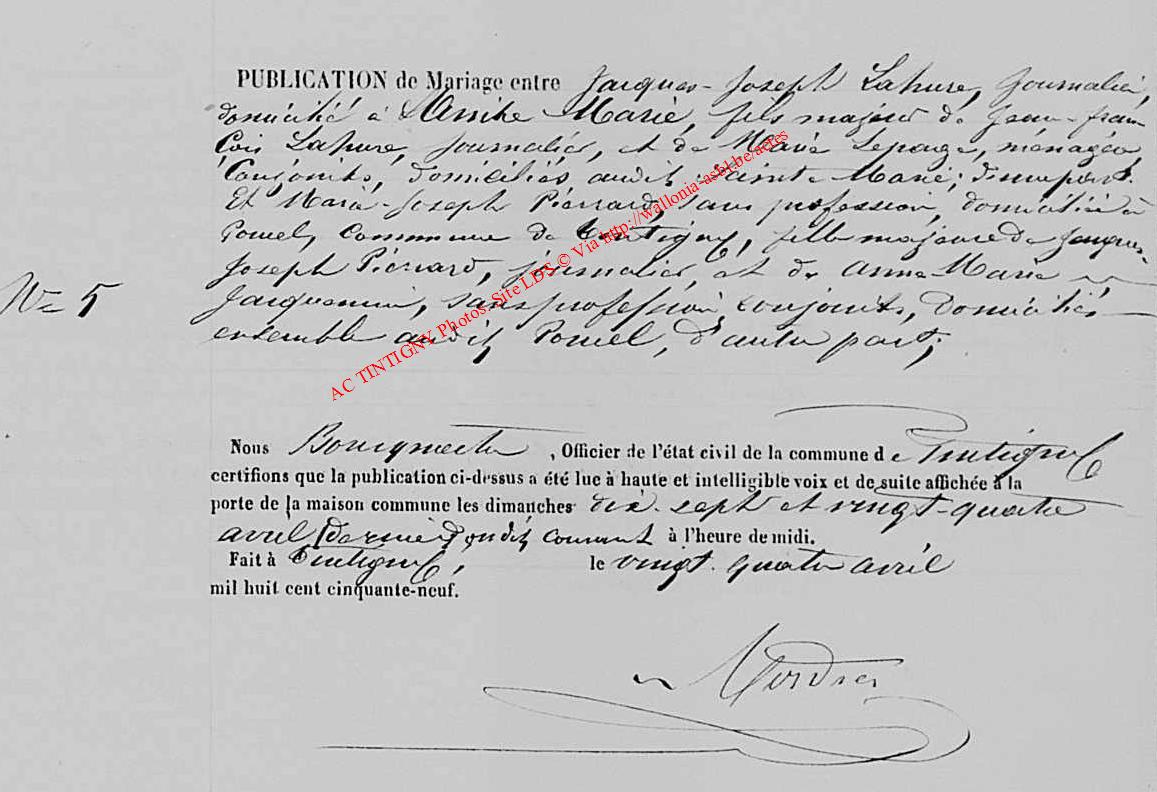 PUBLICATION de Mariage entre Jacques-Joseph Lahure, Journalier,
domicilié à Sainte Marie, fils majeur de Jean-fran
çois Lahure, journalier, et de Marie Lepage, ménagère,
Conjoints, domiciliés audit Sainte Marie; d'une part.
Et Marie-Joseph Pierrard, sans profession, domiciliée à
Poncel, commune de Tintigny, fille majeure de Jacques-
Joseph Pierrard, journalier et de Anne Marie
Jacquemin, sans profession, conjoints, domiciliés
ensemble audit Poncel, d'autre part;
N= 5
Nous Bourgmestre, Officier de l'état civil de la commune de Tintigny
certifions que la publication ci-dessus a été lue à haute et intelligible voix et de suite affichée à la
porte de la maison commune les dimanches dix sept et vingt-quatre
avril courant à l'heure de midi.
Fait à Tintigny, le vingt-quatre avril
mil huit cent cinquante-neuf.
AC TINTIGNY Photos, Site LDS © Via http://wallonia-asbl.be/actes